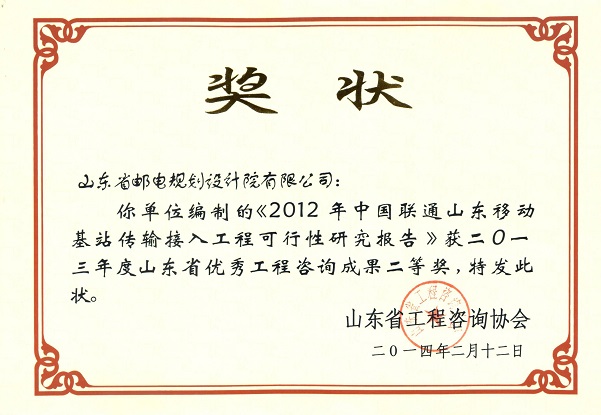 奖状
山东省邮电规划设计院有限公司：
你单位编制的《2012年中国联通山东移动
基站传输接入工程可行性研究报告》获二〇一
三年度山东省优秀工程咨询成果二等奖，特发此
状。
山东省工程咨询协会
二〇一四年二月十二日